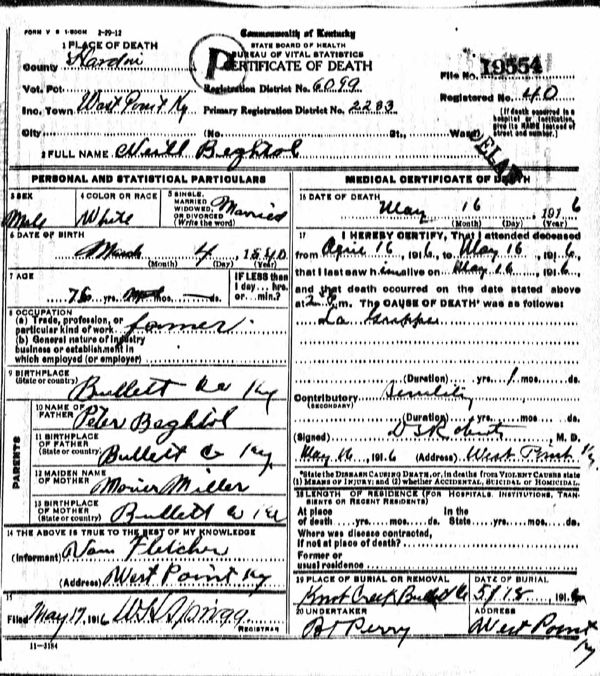 FORM V S 1-500M 2-29-12
Commonwealth of Kentucky
STATE BOARD OF HEALTH
BUREAU OF VITAL STATISTICS
CERTIFICATE OF DEATH
1 PLACE OF DEATH
County Hardin
Vot. Pct
Registration District No. 6099
File No. 19554
Inc. Town West Point Ky
Primary Registration District No. 2283
Registered No. 40
City (No. St., Ward)
(If death occurred in a hospital or institution, give its NAME instead of street and number.)
DELAY
2 FULL NAME Neill Beghtol
PERSONAL AND STATISTICAL PARTICULARS
3 SEX
Male
4 COLOR OR RACE
White
5 SINGLE, MARRIED, WIDOWED, OR DIVORCED (Write the word)
Married
6 DATE OF BIRTH
March 4, 1840
(Month) (Day) (Year)
7 AGE
76 yrs. mos. ds.
IF LESS than 1 day... hrs. or... min.?
8 OCCUPATION
(a) Trade, profession, or particular kind of work farmer
(b) General nature of industry business or establishment in which employed (or employer)
9 BIRTHPLACE
(State or country) Bullett Co Ky
PARENTS
10 NAME OF FATHER Peter Beghtol
11 BIRTHPLACE OF FATHER
(State or country) Bullett Co Ky
12 MAIDEN NAME OF MOTHER Miller
13 BIRTHPLACE OF MOTHER
(State or country) Bullett Co Ky
14 THE ABOVE IS TRUE TO THE BEST OF MY KNOWLEDGE
(Informant) Fletcher
(Address) West Point Ky
15
Filed May 17, 1916
REGISTRAR
11-3184
MEDICAL CERTIFICATE OF DEATH
16 DATE OF DEATH
May 16 1916
(Month) (Day) (Year)
17 I HEREBY CERTIFY, That I attended deceased
from April 16, 1916, to May 16, 1916,
that I last saw him alive on May 16, 1916,
and that death occurred on the date stated above
at 2 m. The CAUSE OF DEATH* was as follows:
La Grippe
(Duration) yrs. 1 mos. ds.
Contributory Senility
(SECONDARY)
(Duration) yrs. mos. ds.
(Signed) Roberts M. D.
May 16, 1916 (Address) West Point Ky
*State the DISEASE CAUSING DEATH, or, in deaths from VIOLENT CAUSES state (1) MEANS OF INJURY; and (2) whether ACCIDENTAL, SUICIDAL or HOMICIDAL.
18 LENGTH OF RESIDENCE (FOR HOSPITALS, INSTITUTIONS, TRANSIENTS OR RECENT RESIDENTS)
At place of death yrs. mos. ds. In the State yrs. mos. ds.
Where was disease contracted, if not at place of death?
Former or usual residence
19 PLACE OF BURIAL OR REMOVAL
Knob Creek Bullett Co
DATE OF BURIAL
5/18, 1916
20 UNDERTAKER
Perry
ADDRESS
West Point Ky